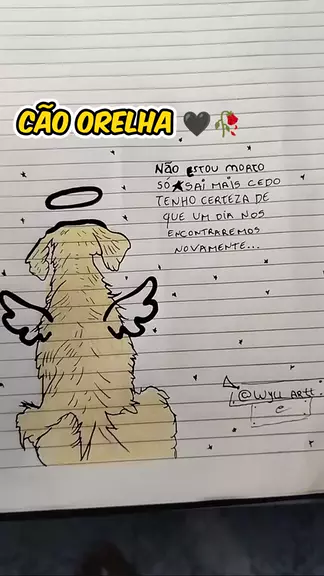 CÃO ORELHA 🖤🥀
NÃO ESTOU MORTO
SÓ SAI MAIS CEDO
TENHO CERTEZA DE
QUE UM DIA NOS
ENCONTRAREMOS
NOVAMENTE...
@WYLL ARTT.